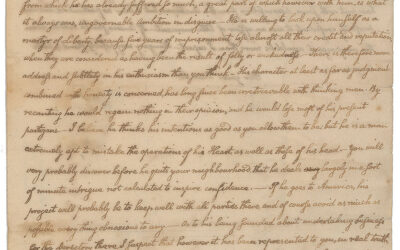 from which he has already suffered so much, a great part of which however with him, is what
it always was, ungovernable Ambition in disguise. He is willing to look upon himself as a
martyr of Liberty, because five years of imprisonment lose almost all their credit and reputation
when they are considered as having been the result of folly or wickedness. There is therefore more
address and subtilty in his enthusiasm than you think. His character at least as far as judgement
combined with honesty is concerned, has long since been irretrievable with thinking men. By
recanting he would regain nothing in their opinion, and he would lose most of his present
partizans. I believe he thinks his intentions as good as you allow them to be but he is a man
extremely apt to mistake the operations of his Heart as well as those of his head. You will
very probably discover before he quits your neighbourhood that he deals very largely in a sort
of minute intrigue not calculated to inspire confidence. If he goes to America, his
project will probably be to keep well with all parties there and of course avoid as much as
possible every thing obnoxious to any. As to his being guarded about undertaking business
for the directory there, I suspect that however it has been represented to you, the real truth